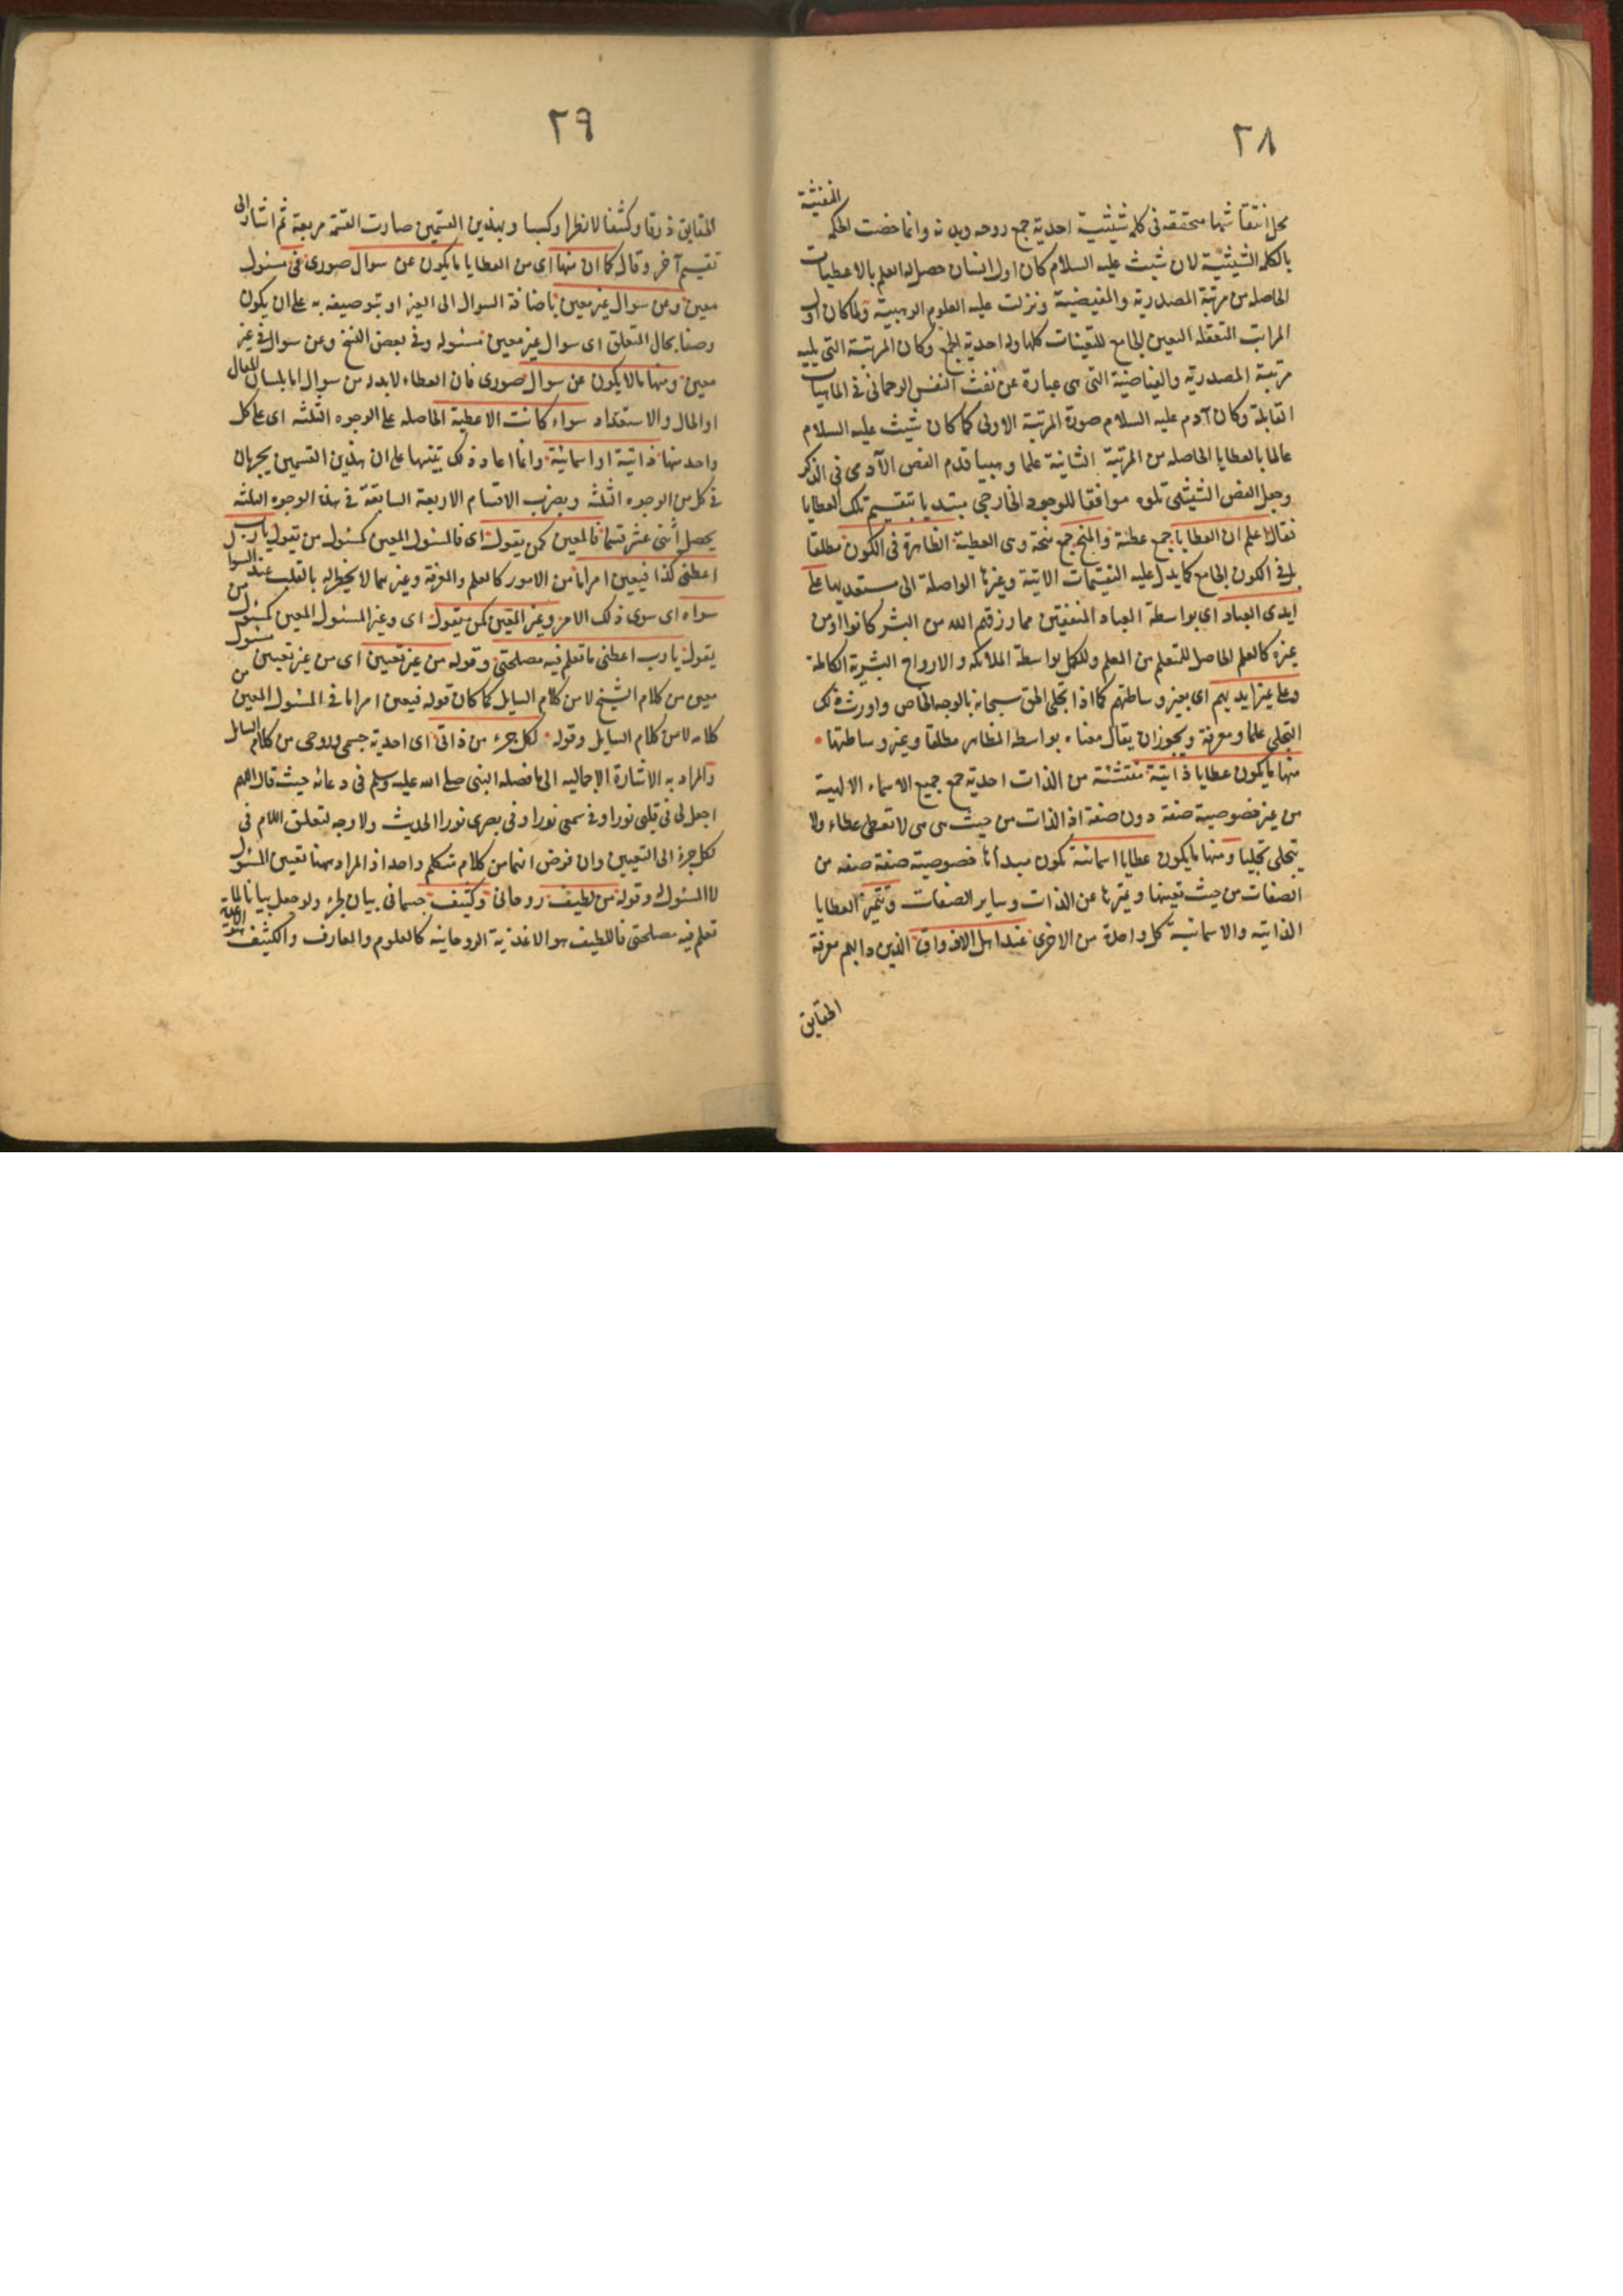 ٢٨
محل انتقاشها متحققة فى كلمة شيثية احدية جمع روحه وبدنه وانما خصت الحكمة النفثية
بالكلمة الشيثية لان شيث عليه السلام كان اول انسان حصل له العلم بالاعطيات
الحاصله من مرتبة المصدرية والمفيضية ونزلت عليه العلوم الوهبية ولما كان اول
المراتب المتعقله التعين الجامع للتعينات كلها وله احدية الجمع وكان المرتبة التى يليه
مرتبة المصدرية والفياضية التى هى عبارة عن نفث النفس الرحمانى فى الماهيات
القابلة وكان آدم عليه السلام صورة المرتبة الاولى كما كان شيث عليه السلام
عالما بالعطايا الحاصله من المرتبة الثانية علما وهبيا قدم الفص الآدمى فى الذكر
وجعل الفص الشيثى تلوه موافقا للوجود الخارجى مبتديا بتقسيم تلك العطايا
فقال اعلم ان العطايا جمع عطية والمنح جمع منحة وهى العطية الظاهرة فى الكون مطلقا
بل فى الكون الجامع كما يدل عليه التقسيمات الاتية وغيرها الواصلة الى مستعديها على
ايدى العباد اى بواسطة العباد المنفقين مما رزقهم الله من البشر كانوا او من
غيره كالعلم الحاصل للمتعلم من المعلم وللكمل بواسطة الملائكه والارواح البشرية الكاملة
وعلى غير ايديهم اى بغير وساطتهم كما اذا تجلى الحق سبحانه بالوجه الخاص واورث ذلك
التجلى علما ومعرفة ويجوز ان يقال معناه بواسطه المظاهر مطلقا وبغير وساطتها
منها ما يكون عطايا ذاتية منتشئة من الذات احدية جمع جميع الاسماء الالهية
من غير خصوصية صفة دون صفة اذ الذات من حيث هى هى لا تعطى عطاء ولا
يتجلى تجليا ومنها ما يكون عطايا اسمائية تكون مبدأها خصوصية صفة صفه من
الصفات من حيث تعينها وتميزها عن الذات وساير الصفات وتتميز العطايا
الذاتيه والاسمائية كل واحدة من الاخرى عند اهل الاذواق الذين دابهم معرفة
الحقايق
٢٩
الحقايق ذوقا وكشفا لا نظرا وكسبا وبهذين القسمين صارت القسمة مربعة ثم اشار الى
تقسيم آخر وقال كما ان منها اى من العطايا ما يكون عن سوال صورى فى مسئول
معين وعن سوال غير معين باضافة السوال الى الغير او توصيفه به على ان يكون
وصفا بحال المتعلق اى سوال غير معين مسئوله وفى بعض النسخ وعن سوال فى غير
معين ومنها ما لا يكون عن سوال صورى فان العطاء لا بد له من سوال اما بلسان المقال
او الحال والاستعداد سواء كانت الاعطية الحاصله على الوجوه الثلثه اى على كل
واحد منها ذاتية او اسمائية وانما اعاد ذلك تنبيها على ان هذين القسمين يجريان
فى كل من الوجوه الثلثه وبضرب الاقسام الاربعة السابقة فى هذا الوجوه الثلثه
يحصل اثنى عشر قسما فالمعين كمن يقول اى فالمسئول المعين كمسئول من يقول يا رب
اعطنى كذا فيعين امراما من الامور كالعلم والمعرفة وغيرهما لا يخطر له بالقلب عند السوال
سواه اى سوى ذلك الامر وغير المعين كمن يقول اى وغير المسئول المعين كمسئول من
يقول يا رب اعطنى ما تعلم فيه مصلحتى وقوله من غير تعيين اى من غير تعيين مسئول
معين من كلام الشيخ لا من كلام السايل كما كان قوله فيعين امراما فى المسئول المعين من
كلامه لا من كلام السايل وقوله لكل جزء من ذاتى اى احدية جسمى وروحى من كلام السايل
والمراد به الاشارة الاجماليه الى ما فصله النبى صلى الله عليه وسلم فى دعائه حيث قال اللهم
اجعل لى فى قلبى نورا وفى سمعى نورا وفى بصرى نورا الحديث ولا وجه لتعلق اللام فى
لكل جزء الى التعيين وان فرض انهما من كلام متكلم واحد اذ المراد ههنا تعيين المسئول
لا المسئول له وقوله من لطيف روحانى وكثيف جسمانى بيان لجزء ولو جعل بيانا لما
تعلم فيه مصلحتى فاللطيف هو الاغذية الروحانيه كالعلوم والمعارف والكثيف هو الاغذية